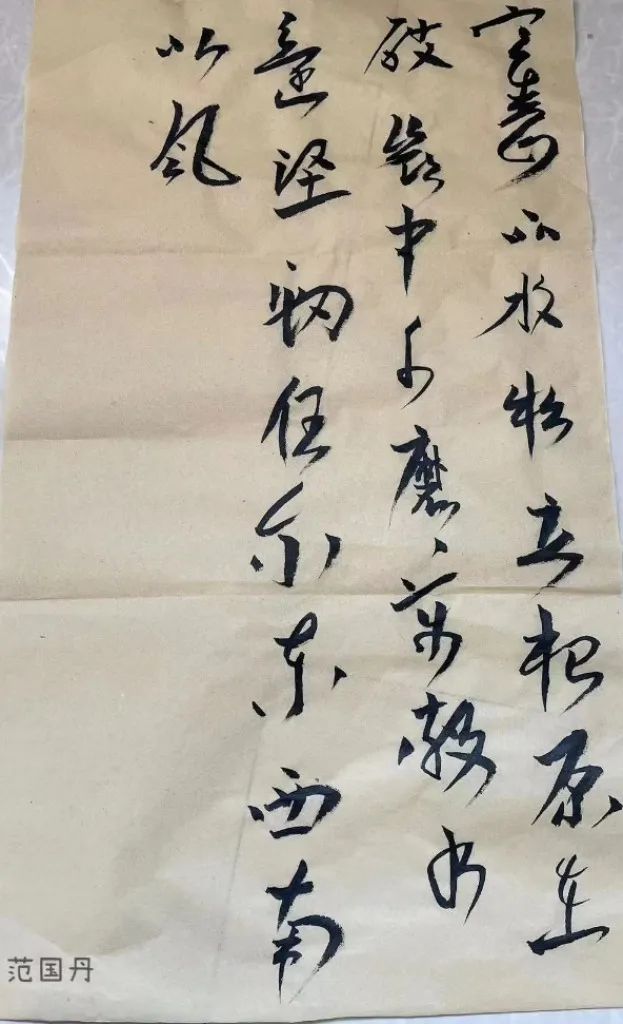 定青山不放松立根原在
破岩中千磨万擊
还坚韧任尔东西南
北风
范国丹